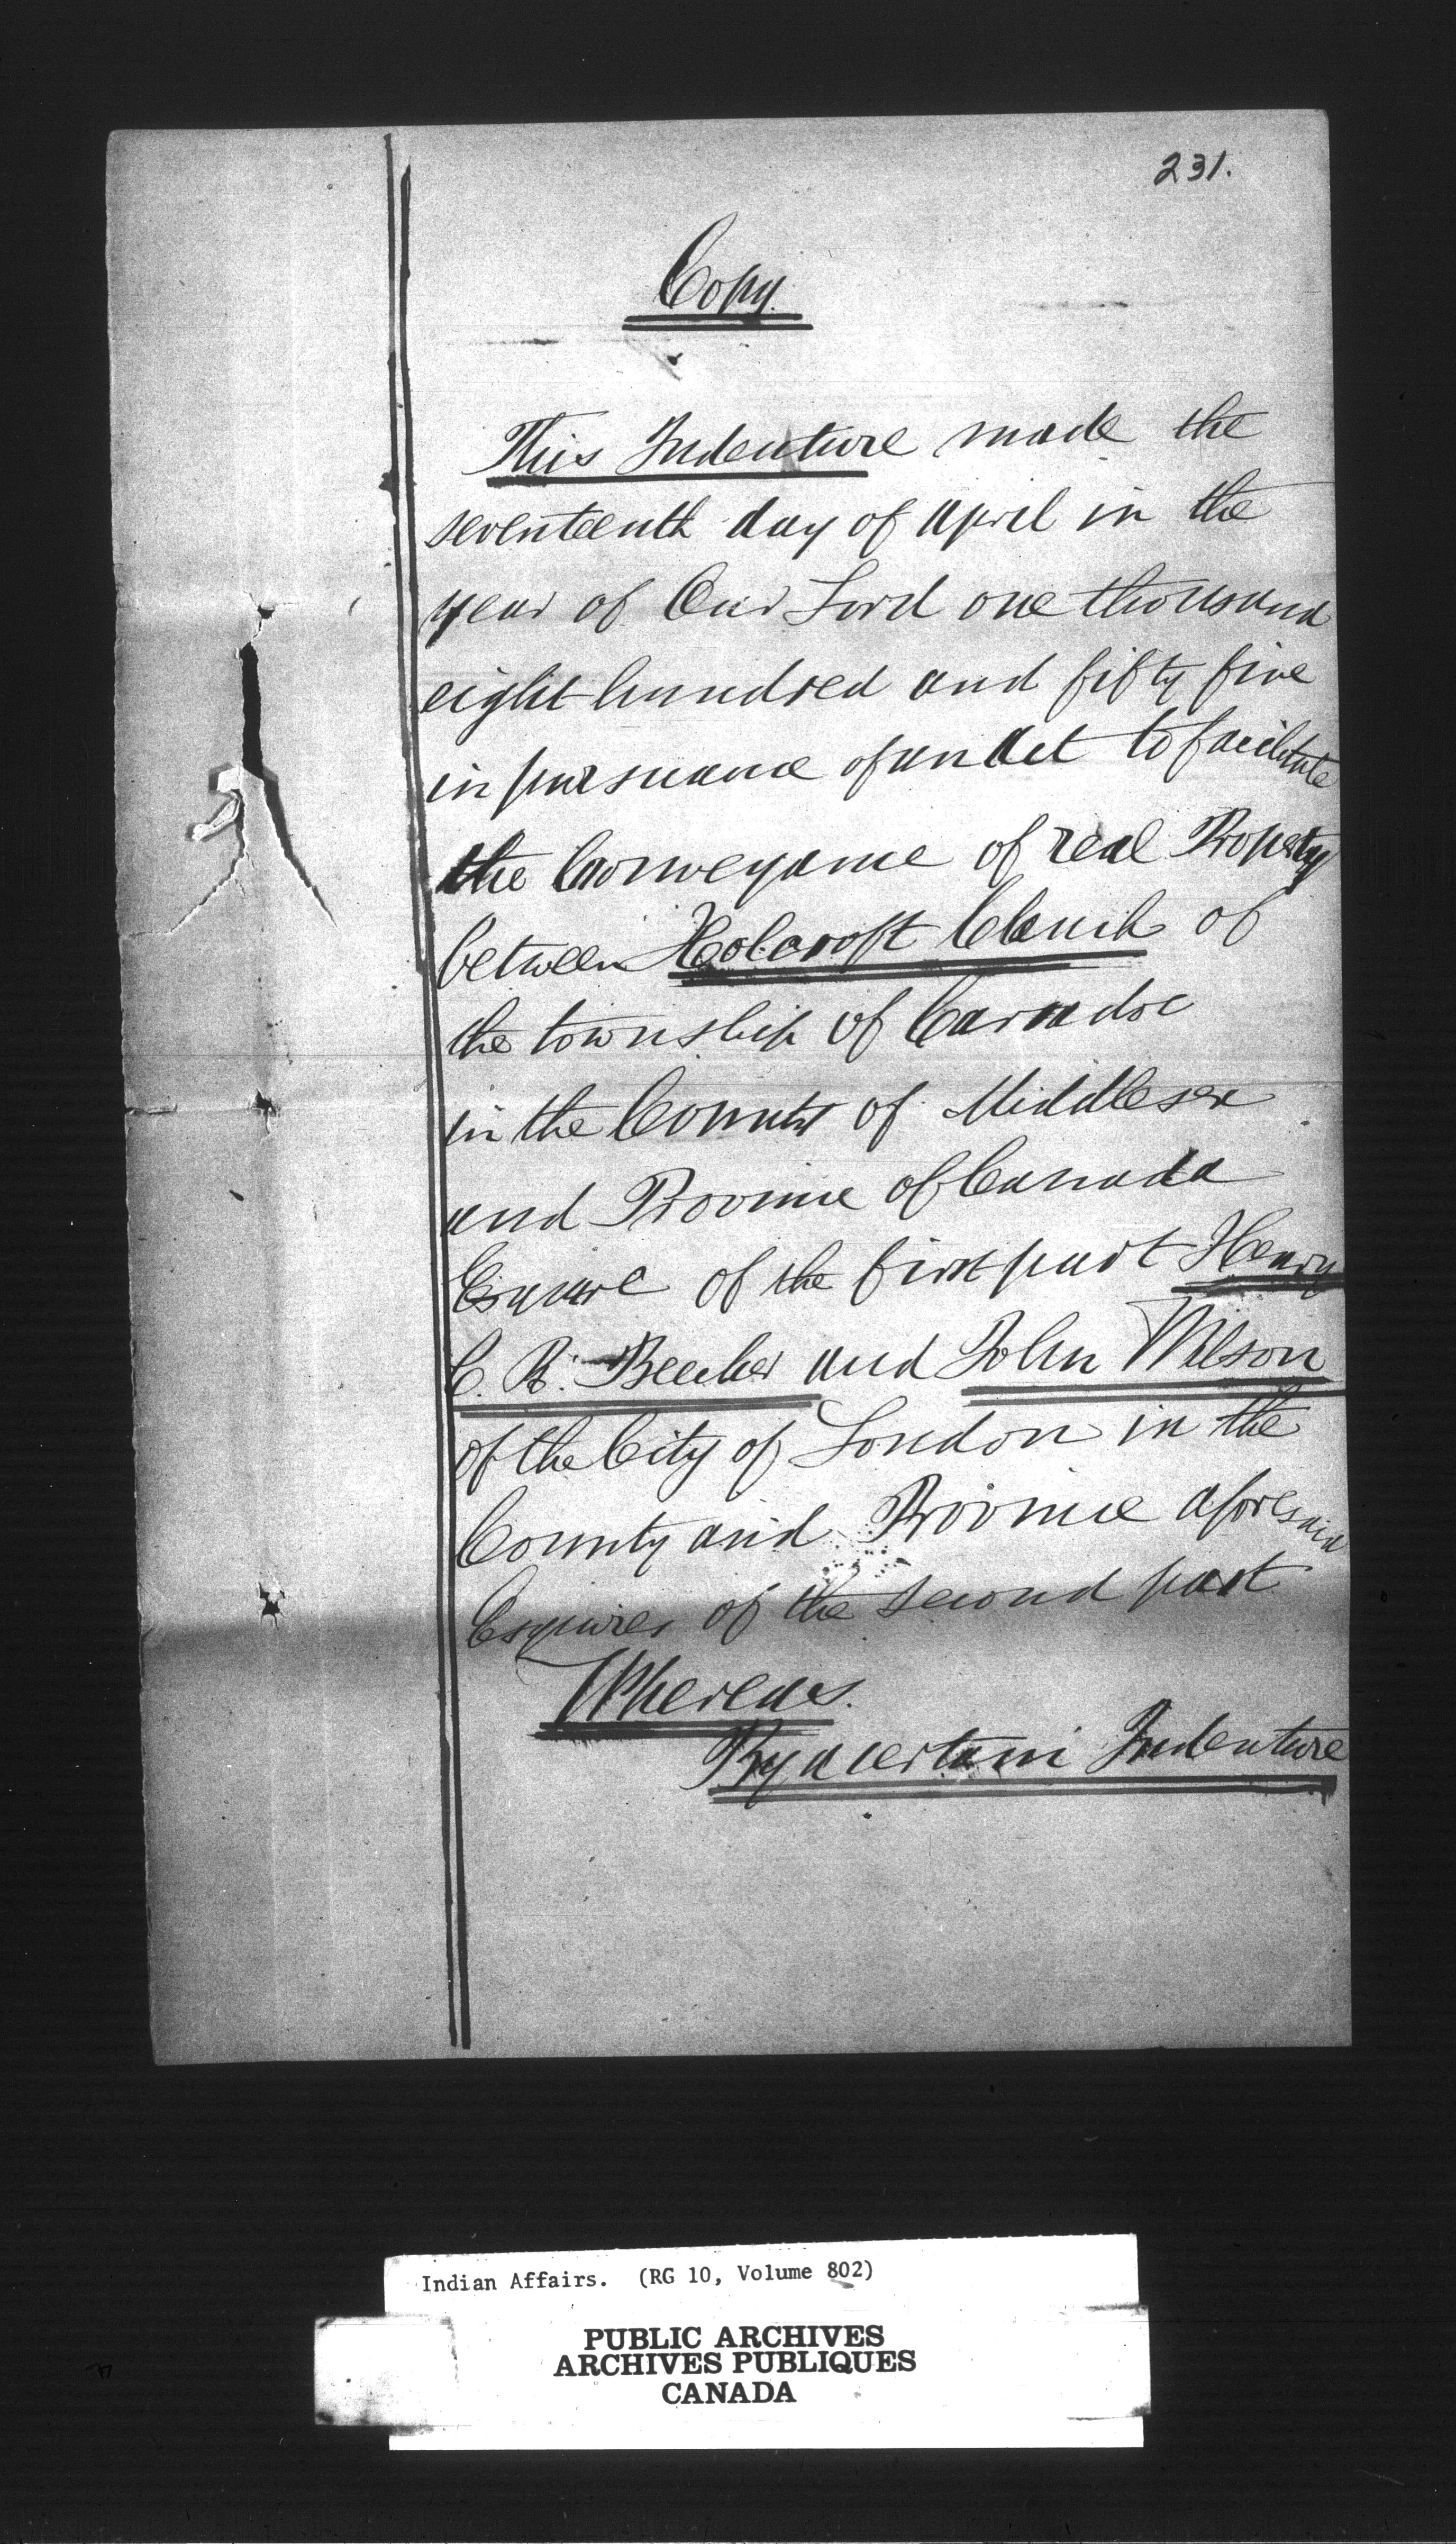 231.
Copy.
This Indenture made the
seventeenth day of April in the
year of Our Lord one thousand
eight hundred and fifty five
in pursuance of an Act to facilitate
the Conveyance of real Property
between Holcroft Clench of
the township of Caradoc
in the County of Middlesex
and Province of Canada
Esquire of the first part Henry
C. R. Beecher and John Wilson
of the City of London in the
County and Province aforesaid
Esquires of the second part
Whereas.
By a certain Indenture
Indian Affairs. (RG 10, Volume 802)
PUBLIC ARCHIVES
ARCHIVES PUBLIQUES
CANADA